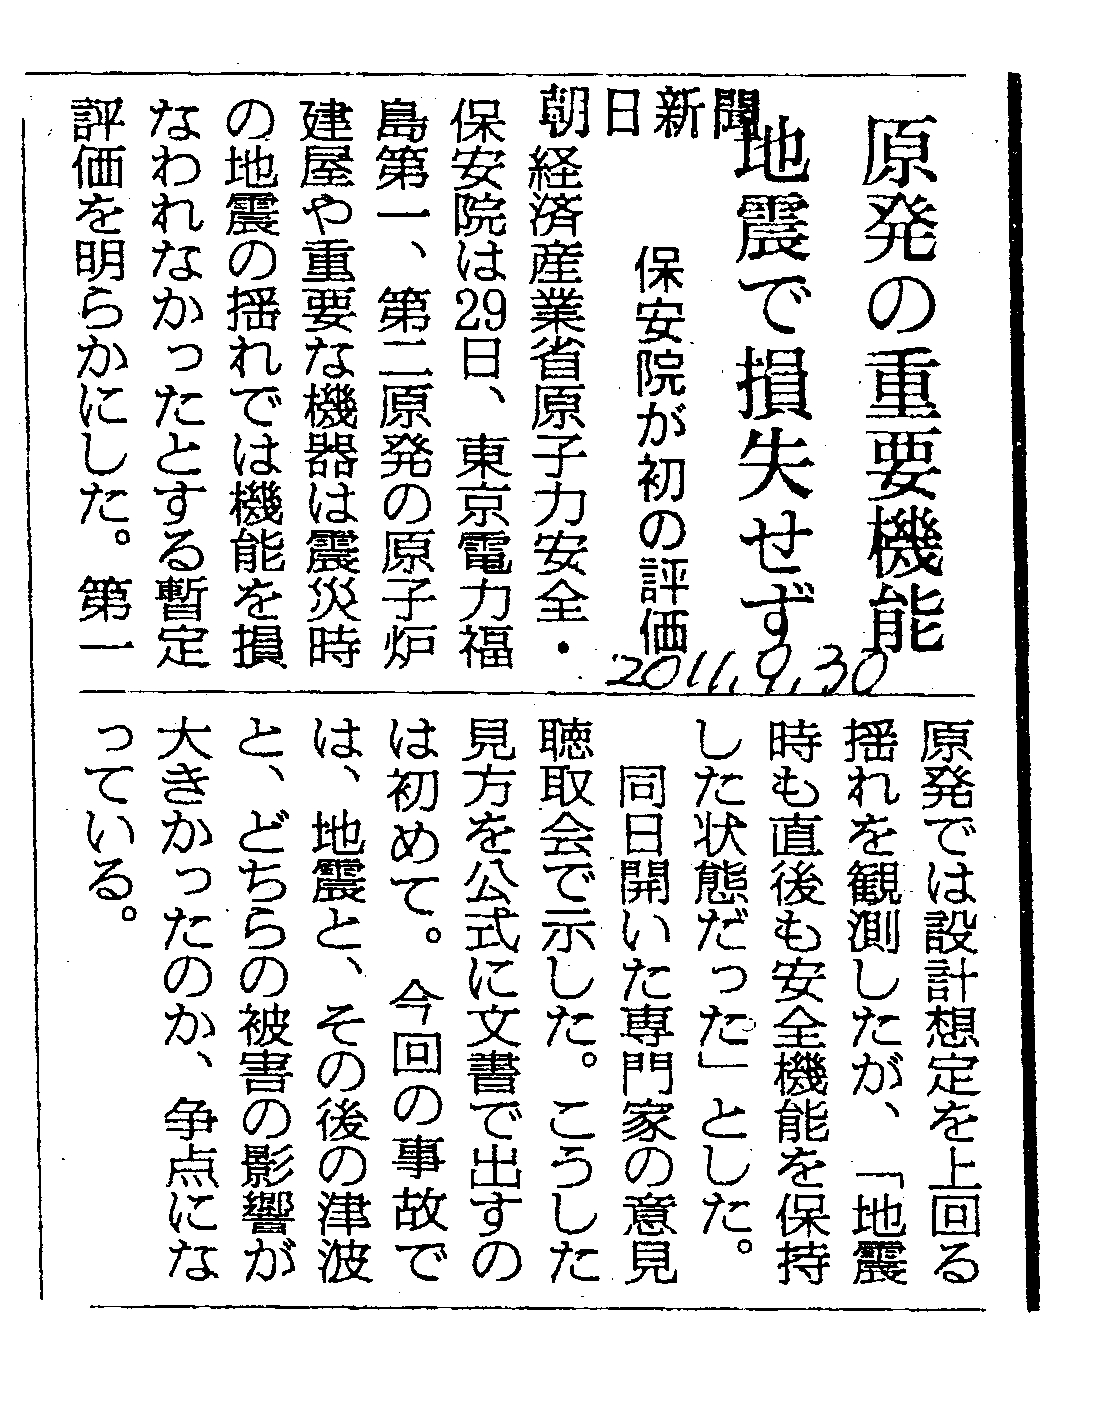 原発の重要機能
地震で損失せず
保安院が初の評価
朝日新聞
2011.9.30
経済産業省原子力安全・
保安院は29日、東京電力福
島第一、第二原発の原子炉
建屋や重要な機器は震災時
の地震の揺れでは機能を損
なわれなかったとする暫定
評価を明らかにした。第一
原発では設計想定を上回る
揺れを観測したが、「地震
時も直後も安全機能を保持
した状態だった」とした。
同日開いた専門家の意見
聴取会で示した。こうした
見方を公式に文書で出すの
は初めて。今回の事故で
は、地震と、その後の津波
と、どちらの被害の影響が
大きかったのか、争点にな
っている。